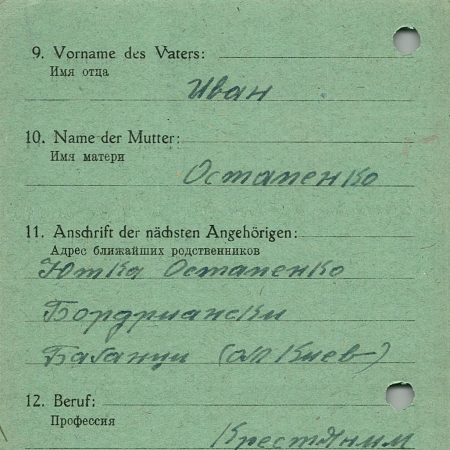 9. Vorname des Vaters:
Имя отца
Иван
10. Name der Mutter:
Имя матери
Остапенко
11. Anschrift der nächsten Angehörigen:
Адрес ближайших родственников
Ютка Остапенко
Бордриански
Бабанци (ол Киев)
12. Beruf:
Профессия
Крестяним